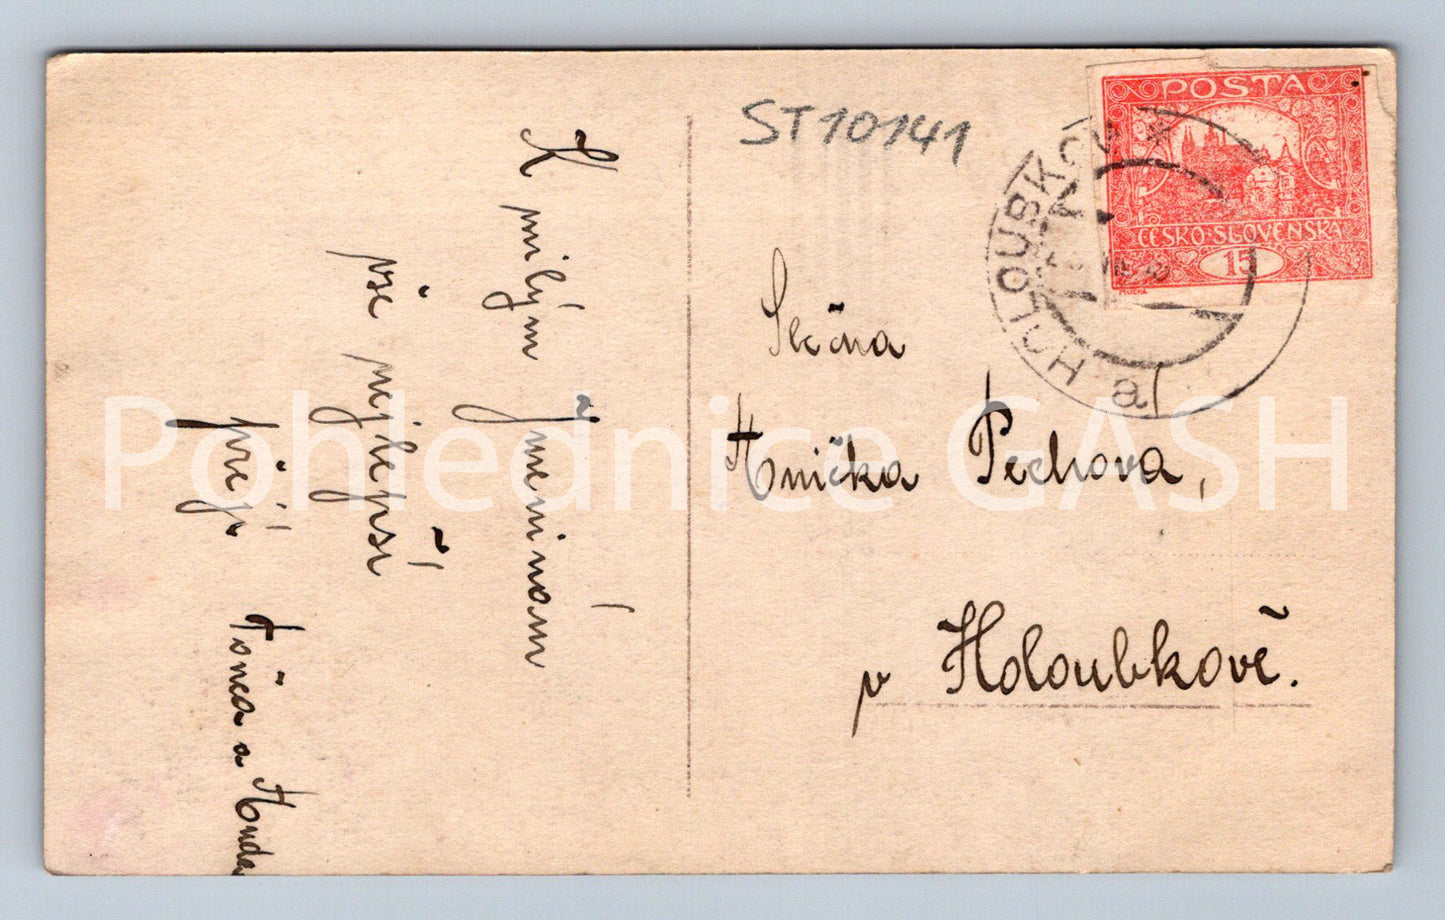 ST10141
POSTA
ČESKO·SLOVENSKÁ
15
MUCHA
HOLOUBKOV
a
K milým
Jmeninám
vše nejlepší
přejí
Tonča a Anda
Slečna
Anička Pechova,
v Holoubkově.
Pohlednice GASH